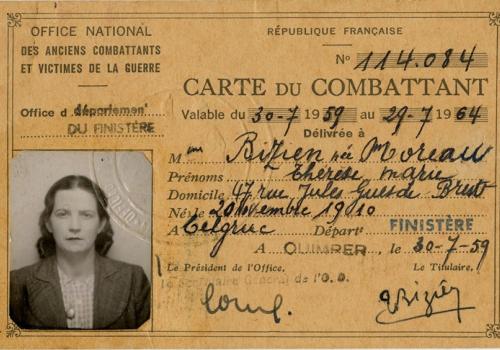 OFFICE NATIONAL
DES ANCIENS COMBATTANTS
ET VICTIMES DE LA GUERRE
Office d départemental
DU FINISTÈRE
RÉPUBLIQUE FRANÇAISE
No 114.084
CARTE DU COMBATTANT
Valable du 30-7 1959 au 29-7 1964
Délivrée à
Mme Rizien née Moreau
Prénoms Thérèse Marie
Domicile 47 rue Jules Guesde Brest
Né le 20 Novembre 1910
à Telgruc Départt FINISTÈRE
A QUIMPER, le 30-7-59
Le Président de l'Office. Le Titulaire,
Le Secrétaire Général de l'O.D.
Rizien